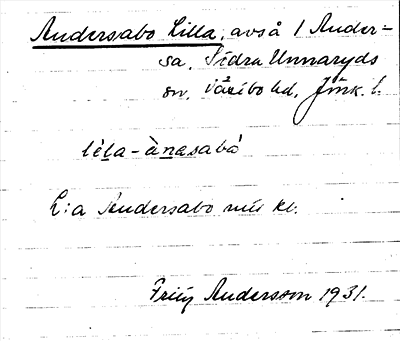 Andersabo Lilla, avså 1 Ander-
sa, Södra Unnaryds
sn, Västbo hd, Jönk. l.
lìla-ànasabå
L:a Andersabo mil kl.
Fritz Andersson 1931.